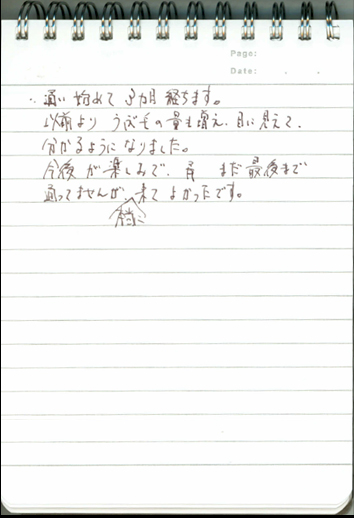 Page:
Date: . .
・通い始めて 3ヵ月 経ちます。
以前より うぶ毛の量も増え、目に見えて、
分かるように なりました。
今後 が 楽しみで、 まだ 最後まで
通ってませんが、来て よかったです。
本当に